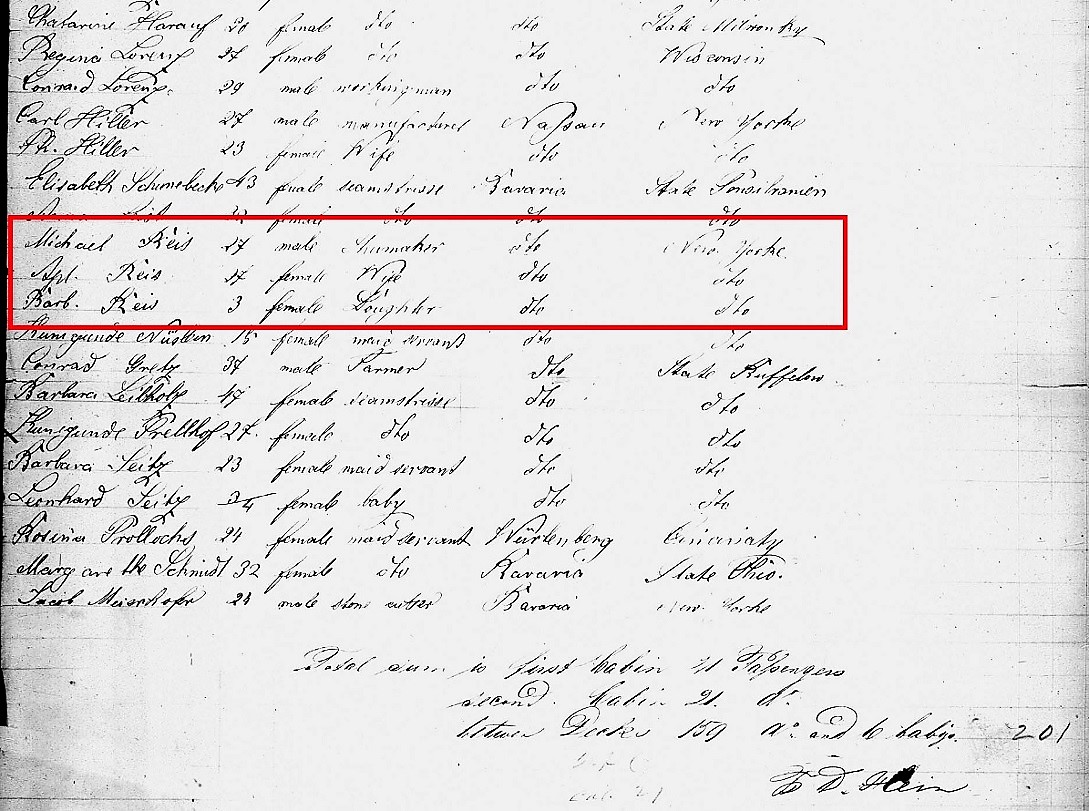 Catharine Harauf 20 female dto dto State Milwonky
Regina Lorenz 27 female dto dto Wisconsin
Conrad Lorenz. 29 male workingman dto dto
Carl Hiller 27 male manufacturel Nassau New Yorke
Ph. Hiller 23 female Wife dto dto
Elisabeth Schunebeck 43 female seamstrisse Bavaria State Pensilvanien
female dto dto dto
Michael Reis 27 male Shumaker dto New Yorke.
Apl. Reis 27 female Wife dto dto
Barb. Reis 3 female Doughter dto dto
Kunigunde 15 female maid servant dto dto
Conrad Gretz 37 male Farmer dto State Buffelow
Barbara Leilholz 47 female seamstrisse dto dto
Kunigunde Prellhof 27. female dto dto dto
Barbara Seitz 23 female maid servant dto dto
Leonhard Seitz 3/4 female baby dto dto
Rosina Prollochs 24 female maid servant Würtenberg Cincinaty
Margarethe Schmidt 32 female dto Bavaria State Ohio.
Jacob Meierhofer 24 male stone cutter Bavaria New Yorke
Total sum is first Cabin 21 Passengers
second. Cabin 21. do.
between Decks 159 do. and 6 babys. 201
D. Hein